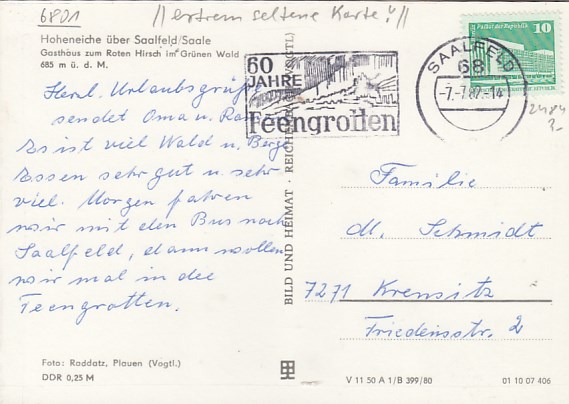 6801
//extrem seltene Karte!//
Hoheneiche über Saalfeld/Saale
Gasthaus zum Roten Hirsch im Grünen Wald
685 m ü. d. M.
Herzl. Urlaubsgrüße
sendet Oma u.
Es ist viel Wald u. Berge
Essen sehr gut u. sehr
viel. Morgen fahren
wir mit den Bus nach
Saalfeld, dann wollen
wir mal in die
Feengrotten.
Foto: Raddatz, Plauen (Vogtl.)
DDR 0,25 M
BILD UND HEIMAT · REICHENBACH (VOGTL)
60
JAHRE
Feengrotten
SAALFELD
68
-7.-7.82.-14
10
2484
Familie
M. Schmidt
7271 Krensitz
Friedensstr. 2
V 11 50 A 1/B 399/80
01 10 07 406